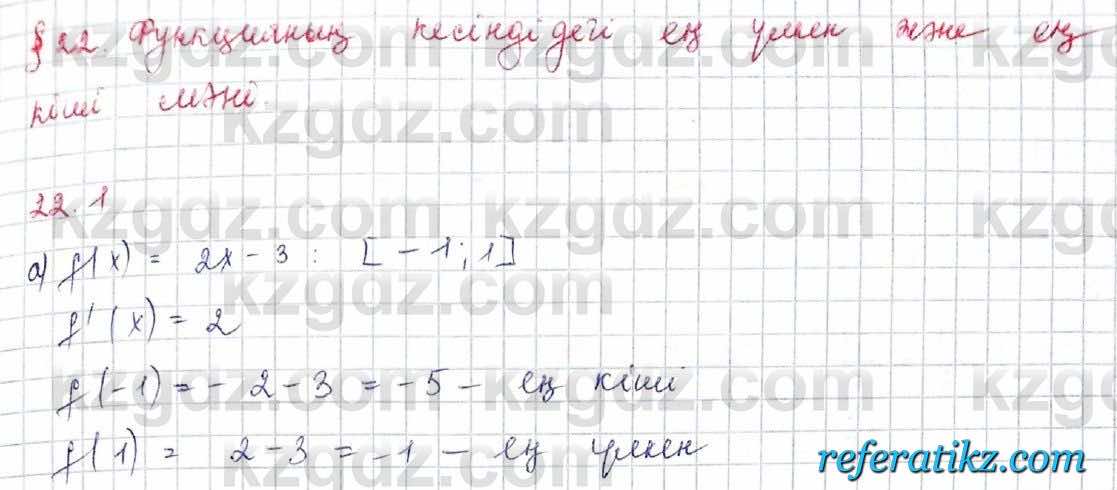 § 22. Функцияның кесіндідегі ең үлкен және ең
кіші мәні.
22.1
а) f(x) = 2x - 3 : [-1; 1]
f'(x) = 2
f(-1) = - 2 - 3 = -5 - ең кіші
f(1) = 2 - 3 = -1 - ең үлкен
kzgdz.com
referatikz.com